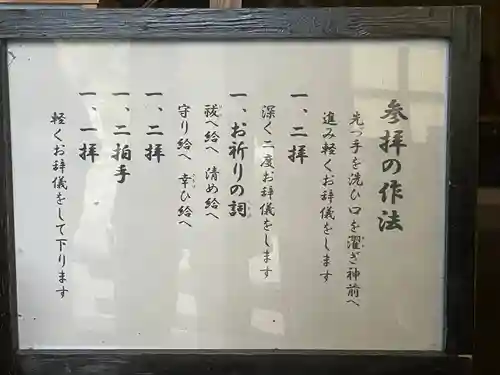 参拝の作法
先つ手を洗ひ口を濯ぎ神前へ
進み軽くお辞儀をします
一、二拝
深く二度お辞儀をします
一、お祈りの詞
祓へ給へ 清め給へ
守り給へ 幸ひ給へ
一、二拝
一、二拍手
一、一拝
軽くお辞儀をして下ります